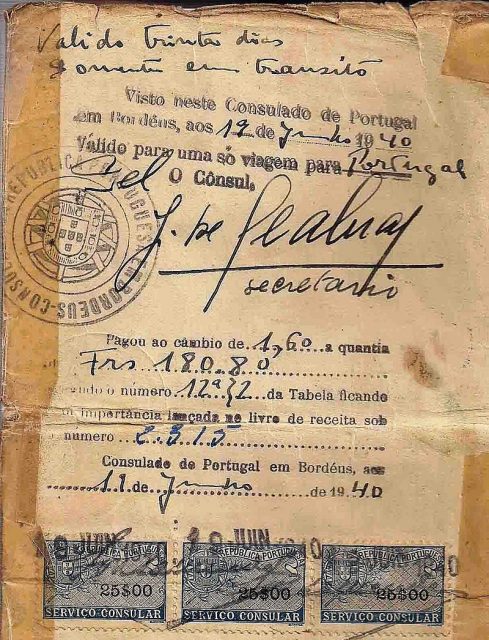 Valido trinta dias
somente em transito
Visto neste Consulado de Portugal
em Bordéus, aos 19 de Junho 1940
Válido para uma só viagem para Portugal
O Cônsul,
secretario
REPUBLICA PORTUGUESA
CONSU BORDEUS
Pagou ao câmbio de 1,60 a quantia
Frs 180.80
o número da Tabela ficando
importância lançada no livro de receita sob
número
Consulado de Portugal em Bordéus, aos
de Junho de 1940
JUN
REPUBLICA PORTUG
25$00
SERVIÇO CONSULAR
19 JUN 1940
REPUBLICA PORTUG
25$00
SERVIÇO CONSULAR
REPUBLICA PORTUG
25$00
SERVIÇO CONSULAR